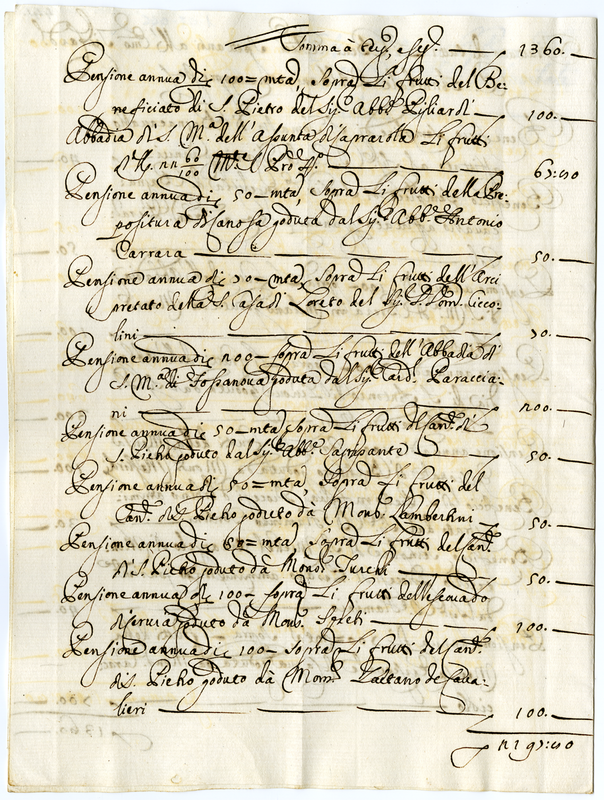 Somma à tergo e segue — 1360. —
Pensione annua di 100 = mta, sopra Li frutti del Be:
neficiato di S. Pietro del Sig. Abb.e Pigliardi — 100. —
Abbadia di S. M.a dell'Assunta Li frutti
60/100 — 65:40
Pensione annua di 50 — mta, sopra Li frutti della Pre:
positura di Canosa goduta dal Sig. Abb.e Antonio
Carrara — 50. —
Pensione annua di 30 — mta, sopra Li frutti dell'Arci
pretato della S. Casa di Loreto del Sig. D. Dom. Cicco:
lini — 30. —
Pensione annua di 200 — sopra Li frutti dell'Abbadia di
S. M.a di Fossanova goduta dal Sig. Card. Paraccia:
ni — 200. —
Pensione annua di 50 — mta, sopra Li frutti del Can.to di
S. Pietro goduto dal Sig. Abb.e Sampante — 50. —
Pensione annua di 50 = mta, sopra Li frutti del
Can.to di S. Pietro goduto dà Mons.r Lambertini — 50. —
Pensione annua di 50 = mta, sopra Li frutti del Can.to
di S. Pietro goduto dà Mons.r Turchi — 50. —
Pensione annua di 100 — sopra Li frutti del Vescovado
di Cervia goduto dà Mons.r Spreti — 100. —
Pensione annua di 100 — sopra Li frutti del Can.to
di S. Pietro goduto dà Mons.r Gaetano de Cava:
lieri — 100. —
2195:40